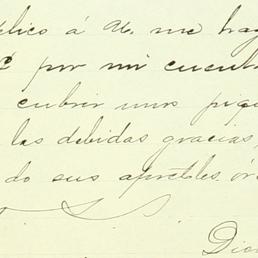 plico á U. me hag
é por mi cuenta
cubrir unos piqu
las debidas gracias,
do sus apreciables ór
S. S.
Dio